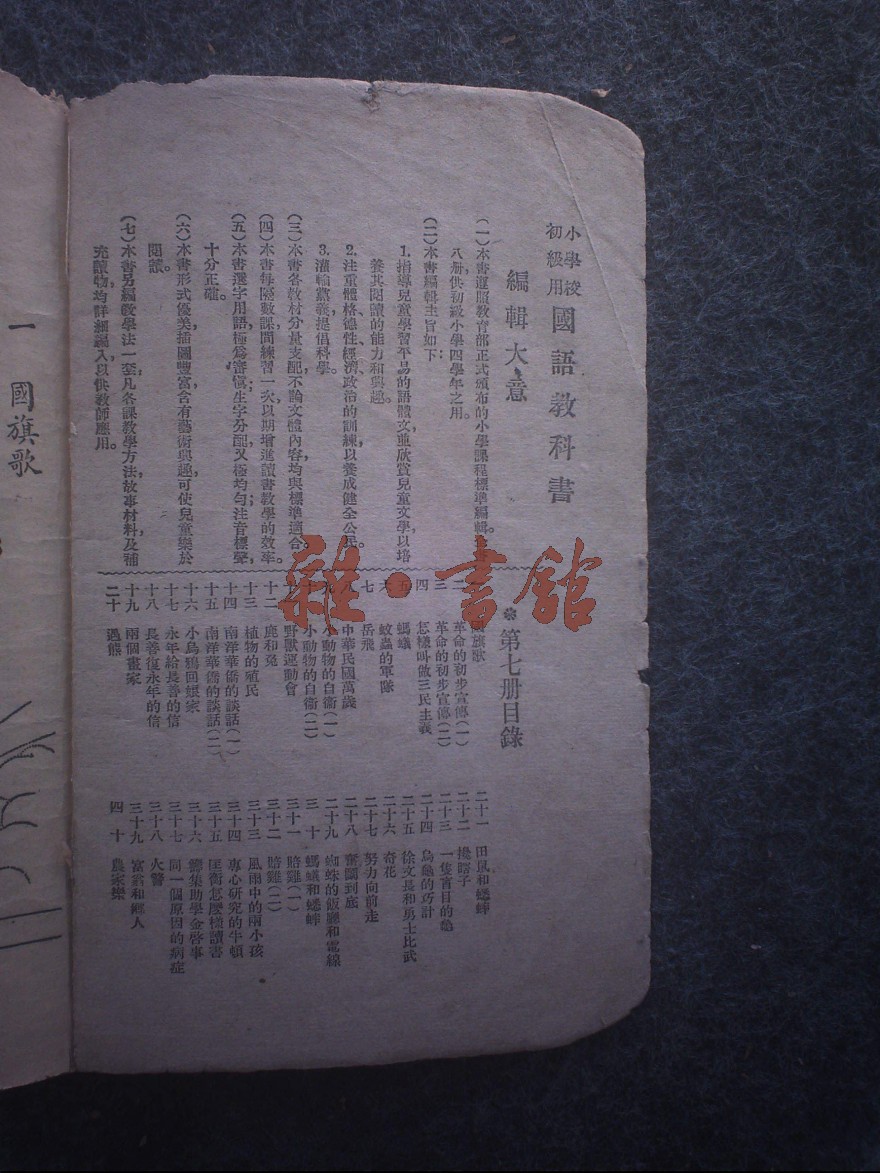 小學校
初級用
國語教科書
編輯大意
(一)本書遵照教育部正式頒布的小學課程標準編輯。全書
八册,供初級小學四學年之用。
(二)本書編輯主旨如下:
1.指導兒童學習平易的語體文,並欣賞兒童文學,以培
養其閱讀的能力和興趣。
2.注重體格、德性、經濟、政治的訓練,以養成健全公民。
3.灌輸黨義,提倡科學。
(三)本書各教材分量支配,不論文體內容,均與標準適合。
(四)本書每隔數課,間練習一次,以期增進讀書教學的效率。
(五)本書選字用語,極爲審愼;生字分配,又極均勻;注音標聲,
十分正確。
(六)本書形式優美,插圖豐富,含有藝術興趣,可使兒童樂於
閱讀。
(七)本書另編教學法一套,凡各課教學方法、故事材料及補
充讀物,均詳細編入,以供教師應用。
第七册目錄
國旗歌
二 革命的初步宣傳(一)
三 革命的初步宣傳(二)
四 怎樣叫做三民主義
五 螞蟻
六 蚊蟲的軍隊
七 岳飛
八 中華民國萬歲
九 小動物的自衞(一)
十 小動物的自衞(二)
十一 野獸運動會
十二 鹿和兎
十三 植物的殖民
十四 南洋華僑的談話(一)
十五 南洋華僑的談話(二)
十六 小烏鴉回娘家
十七 永年給長善的信
十八 長善復永年的信
十九 兩個畫家
二十 遇熊
二十一 田鼠和蟋蟀
二十二 攙瞎子
二十三 一隻盲目的龜
二十四 烏龜的巧計
二十五 徐文長和勇士比武
二十六 奇花
二十七 努力向前走
二十八 奮鬭到底
二十九 蜘蛛的飯廳和電線
三十 螞蟻和蟋蟀
三十一 賠雞(一)
三十二 賠雞(二)
三十三 風雨中的兩小孩
三十四 專心研究的牛頓
三十五 匡衡怎麽樣讀書
三十六 籌集助學金啓事
三十七 同一個原因的病症
三十八 火警
三十九 富翁和鞋人
四十 農家樂
一 國旗歌
雜·書館